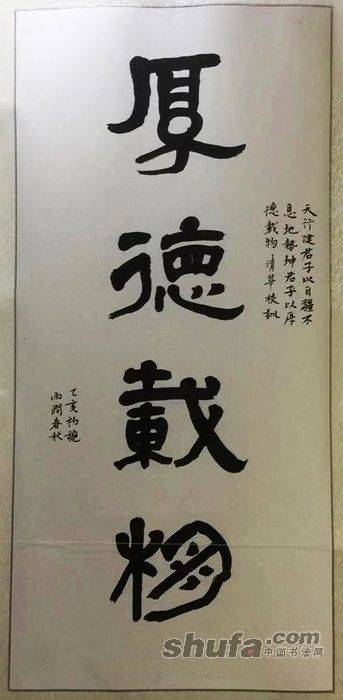 厚德載物
天行健君子以自疆不
息地勢坤君子以厚
德載物 清華校訓
乙亥初秋
雨潤春秋
shufa.com
中国书法网